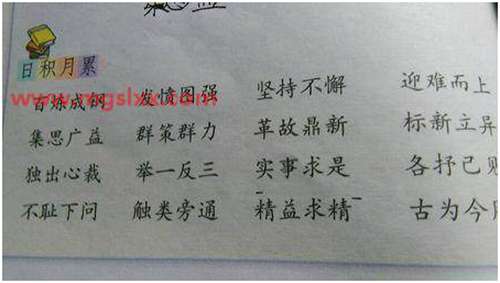 集思益
日积月累
www.mgslxx.com
百炼成钢 发愤图强 坚持不懈 迎难而上
集思广益 群策群力 革故鼎新 标新立异
独出心裁 举一反三 实事求是 各抒己
不耻下问 触类旁通 精益求精 古为今